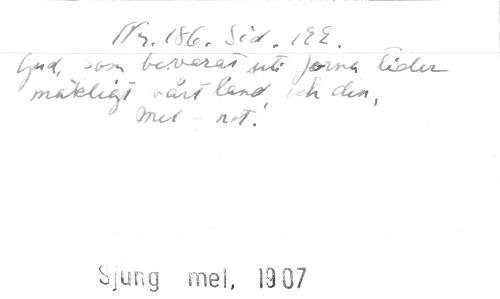 Nr. 186. Sid. 199.
Gud, som bevarat uti forna tider
mäktigt vårt land, och den,
Mel - not.
Sjung mel, 1907